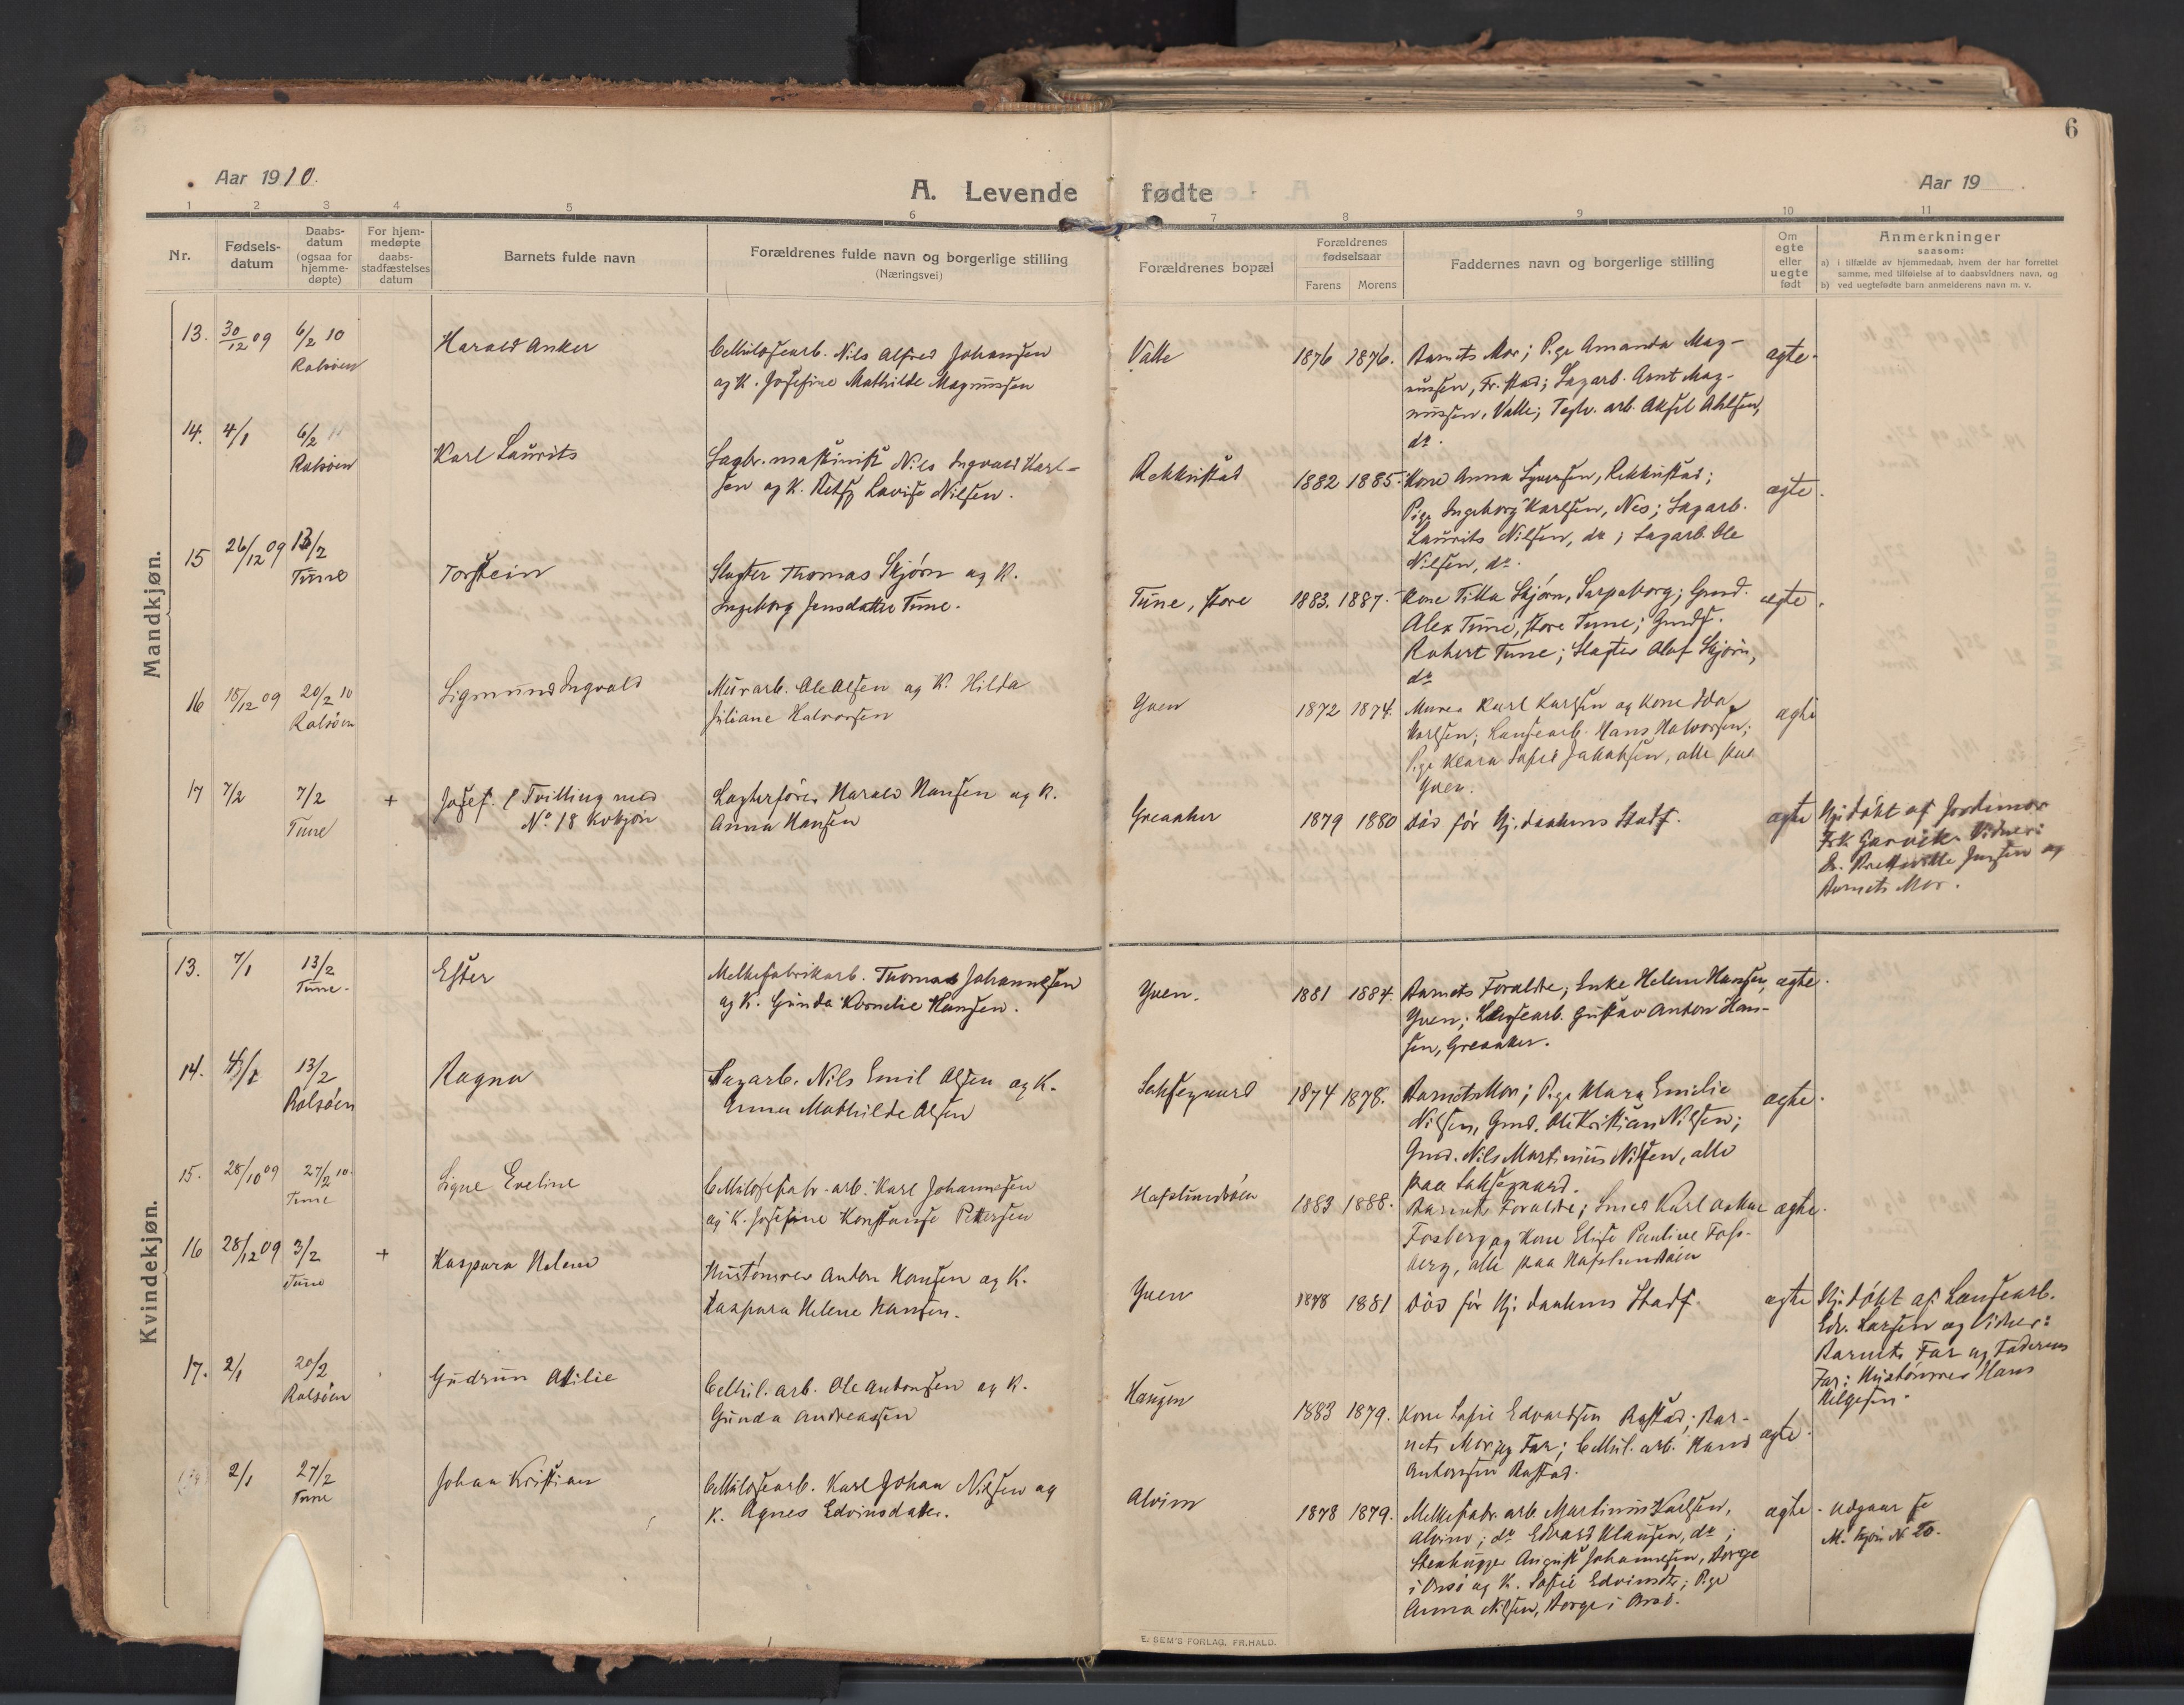 6
Aar 1910.
A. Levende fødte
Aar 19
1 2 3 4 5 6 7 8 9 10 11
Nr.
Fødsels-
datum
Daabs-
datum
(ogsaa for
hjemme-
døpte)
For hjem-
medøpte
daabs-
stadfæstelses
datum
Barnets fulde navn
Forældrenes fulde navn og borgerlige stilling
(Næringsvei)
Forældrenes bopæl
Forældrenes
fødselsaar
Farens Morens
Faddernes navn og borgerlige stilling
Om
egte
eller
uegte
født
Anmerkninger
saasom:
a) i tilfælde av hjemmedaab, hvem der har forrettet
samme, med tilføielse af to daabsvidners navn, og
b) ved uegtefødte barn anmelderens navn m. v.
Mandkjøn.
13. 30/12 09 6/2 10
Rolsøen
Harald Anker
Cellulosearb. Nils Alfred Johansen
og K. Josefine Mathilde Magnussen
Valle
1876 1876.
Barnets Mor; Pige Amanda Mag-
nussen, Fr.stad; Sagarb. Arnt Mag-
nussen, Valle; Teglv. arb. Aksel Ahlsen,
do.
ægte.
14. 4/1 6/2
Rolsøen
Karl Laurits
Sagbr. maskinist Nils Ingvald Karl-
sen og K. Lovise Nilsen.
Rekkustad
1882 1885.
Kone Anna Syversen, Rekkustad;
Pige Ingeborg Karlsen, Nes; Sagarb.
Laurits Nilsen, do; Sagarb. Ole
Nilsen, do.
ægte.
15 26/12 09 13/2
Tune
Torstein
Slagter Thomas Skjørn og K.
Ingeborg Jensdatter Tune.
Tune, store
1883. 1887.
Kone Titta Skjørn, Sarpsborg; Grnd.
Alex Tune, store Tune; Gmdf.
Robert Tune; Slagter Olaf Skjørn,
do
ægte.
16 18/12 09 20/2 10
Rolsøen
Sigmund Ingvald
Murarb. Ole Olsen og K. Hilda
Juliane Halvorsen
Yven
1872 1874.
Murer Karl Karlsen og Kone Ida
Karlsen; Lensearb. Hans Halvorsen;
Pige Klara Sofie Jakobsen, alle paa
Yven.
ægte
17 7/2 7/2 +
Tune
Josef. ( Tvilling med
No 18 Kvkjøn
Lagterfører Harald Hansen og K.
Anna Hansen
Greaaker
1879 1880
Død før Hj.daabens Stadf.
ægte
Hj.døbt af Jordmor
Frk. Gjervik. Vidner:
Jensen og
Barnets Mor.
Kvindekjøn.
13. 7/1 13/2
Tune.
Ester
Melkefabrikarb. Thomas Johannesen
og K. Gunda Kornelie Hansen.
Yven.
1881 1884.
Barnets Forældre; Enke Helene Hansen,
Yven; Lensearb. Gustav Anton Han-
sen, Greaaker.
ægte.
14. 13/2
Rolsøen
Ragna
Sagarb. Nils Emil Olsen og K.
Emma Mathilde Olsen
Saksegaard
1874 1878.
Barnets Mor; Pige Klara Emilie
Nilsen, Gmd. Ole Kristian Nilsen;
Gmd. Nils Martinius Nilsen, alle
paa Saksegaard.
ægte.
15. 28/10 09 27/2 10.
Tune
Signe Eveline
Cellulosefabr.-arb. Karl Johannesen
og K. Josefine Konstanse Pettersen
Hafslundsøen
1883 1888.
Barnets Forældre; Smed Karl Oskar
Fosberg og Kone Elise Pauline Fos-
berg, alle paa Hafslundsøen
ægte.
16 28/12 09 3/2 +
Tune
Kaspara Helene
Hustømrer Anton Hansen og K.
Kaspara Helene Hansen.
Yven
1878 1881
Død før Hj. daabens Stadf.
ægte
Hj.døbt af Lensearb.
Edv. Larsen og Vidner:
Barnets Far og Faderens
Far; Hustømrer Hans
Helgesen.
17. 2/1 20/2
Rolsøen
Gudrun Otilie
Cellul. arb. Ole Antonsen og K.
Gunda Andreassen
Haugen
1883 1879.
Kone Sofie Edvardsen Rostad; Bar-
nets Mor og Far; Cellul. arb. Hans
Antonsen Rostad.
ægte.
2/1 27/2
Tune
Johan Kristian
Cellulosearb. Karl Johan Nilsen og
K. Agnes Edvinsdatter.
Alvim
1878 1879.
Melkefabr. arb. Martinius Karlsen,
Alvim; do Edvard Klausen, do;
Stenhugger August Johannesen, Borge
i Onsø og K. Sofie Edvinsdtr; Pige
Anna Nilsen, Borge i Onsø.
ægte.
Udgaar se
M. kjøn No 20.
E. SEM'S FORLAG, FR.HALD.